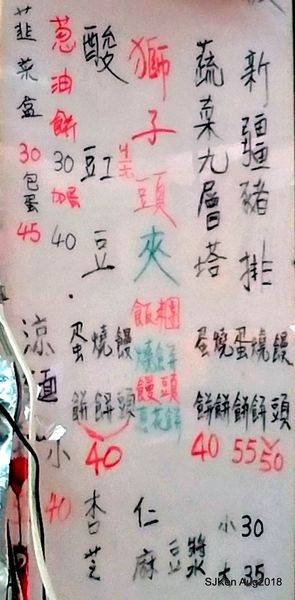 新疆豬排
蛋燒饅
餅餅頭
55 50
蔬菜九層塔
蛋燒
餅餅
40
獅子頭夾
飯糰
燒餅
饅頭
蔥花餅
酸豇豆
蛋燒饅
餅餅頭
40
蔥油餅 30 加蛋 40
韭菜盒 30 包蛋 45
涼麵
小 40
杏仁
芝麻
豆漿
小 30
大 35
SJKen Aug2018